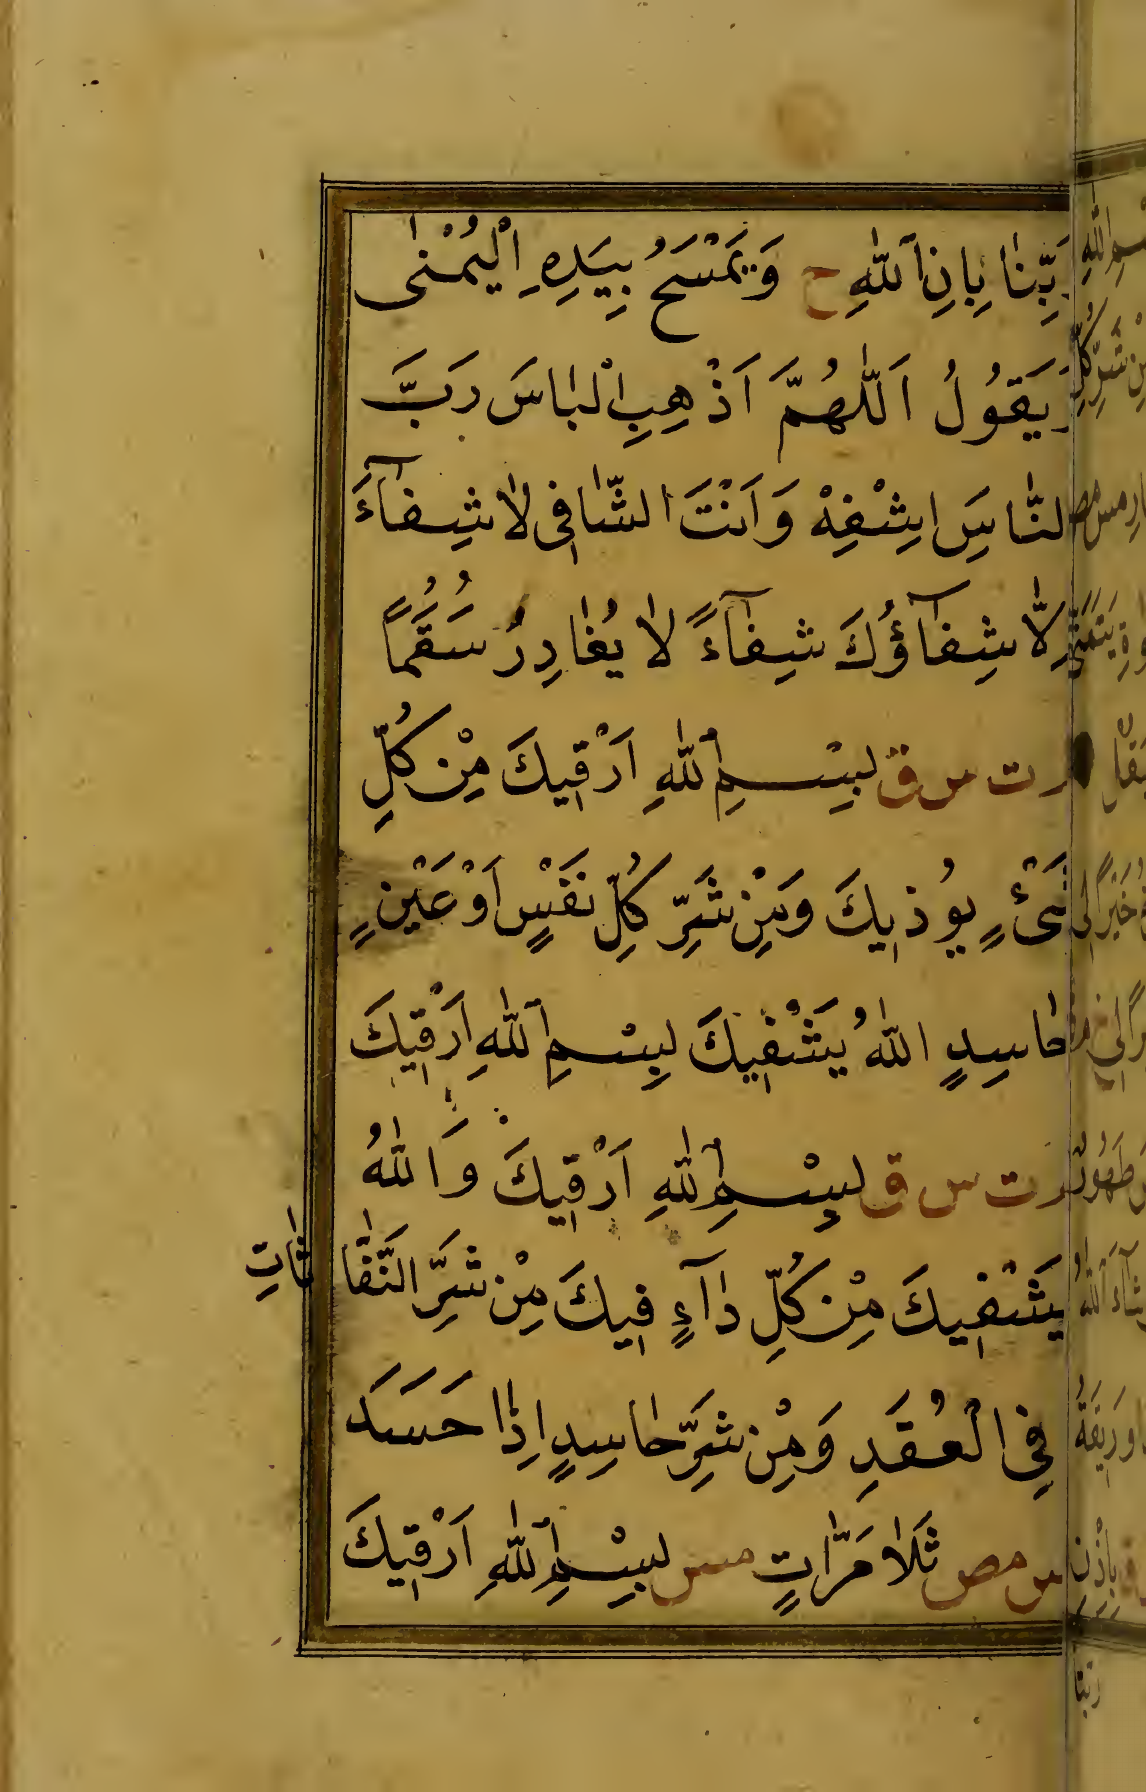 رَبِّنَا بِاِذِنِ اللّٰهِ ح وَيَمْسَحُ بِيَدِهِ الْيُمْنٰى
وَيَقُولُ اَللّٰهُمَّ اَذْهِبِ الْبَاسَ رَبَّ
النَّاسِ اِشْفِهْ وَاَنْتَ الشَّافِى لَا شِفَآءَ
اِلَّا شِفَآؤُكَ شِفَآءً لَا يُغَادِرُ سَقَمًا
ت س ق بِسْمِ اللّٰهِ اَرْقِيكَ مِنْ كُلِّ
شَىْءٍ يُوْذِيكَ وَمِنْ شَرِّ كُلِّ نَفْسٍ اَوْ عَيْنٍ
حَاسِدٍ اللّٰهُ يَشْفِيكَ بِسْمِ اللّٰهِ اَرْقِيكَ
ت س ق بِسْمِ اللّٰهِ اَرْقِيكَ وَاللّٰهُ
يَشْفِيكَ مِنْ كُلِّ دَآءٍ فِيكَ مِنْ شَرِّ النَّفَّاثَاتِ
فِى الْعُقَدِ وَمِنْ شَرِّ حَاسِدٍ اِذَا حَسَدَ
س مص ثَلَا مَرَّاتٍ مس بِسْمِ اللّٰهِ اَرْقِيكَ
رَبِّنَا